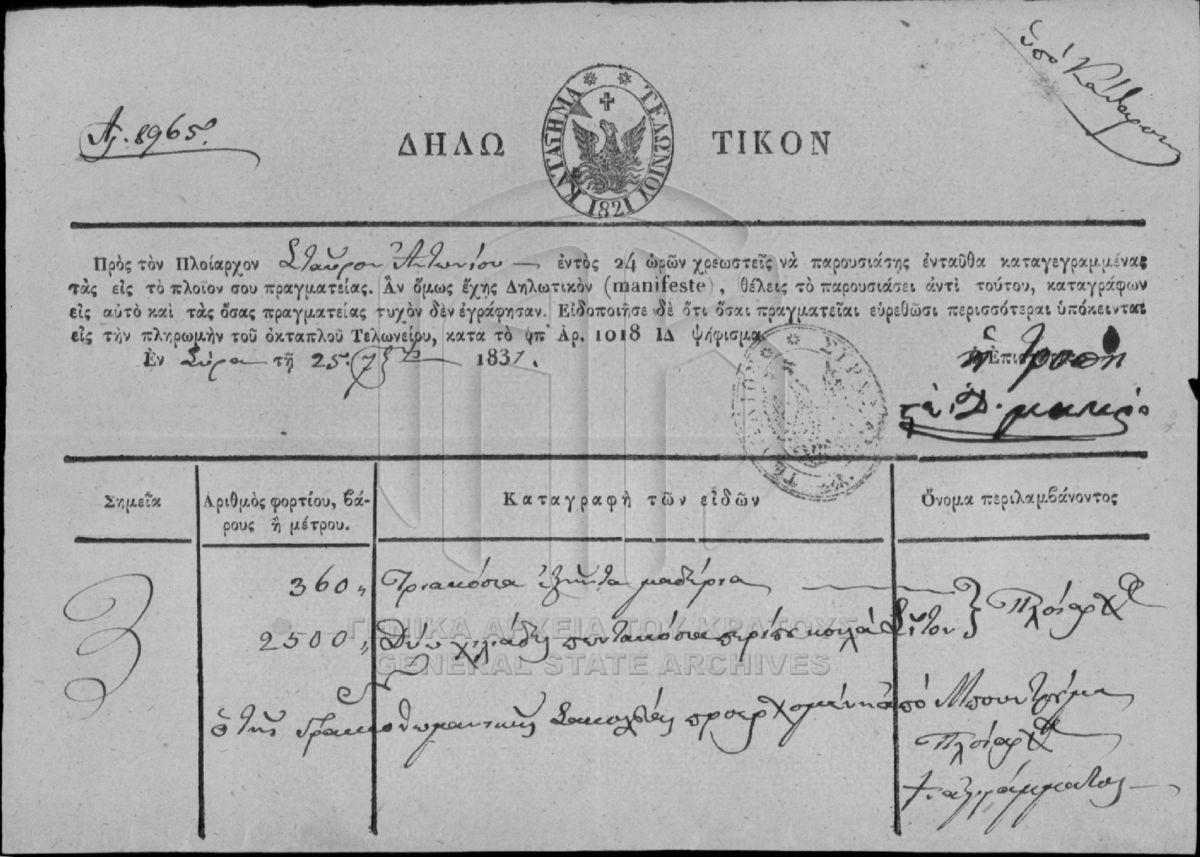 ὑπὸ Κάθαρσιν
Ἀρ. 8965.
ΔΗΛΩΤΙΚΟΝ
ΚΑΤΑΣΤΗΜΑ ΤΕΛΩΝΙΟΥ
1821
Πρὸς τὸν Πλοίαρχον Σταῦρον Ἀντωνίου ἐντὸς 24 ὡρῶν χρεωστεῖς νὰ παρουσιάσης ἐνταῦθα καταγεγραμμένας
τὰς εἰς τὸ πλοῖον σου πραγματείας. Ἂν ὅμως ἔχης Δηλωτικὸν (manifeste), θέλεις τὸ παρουσιάσει ἀντὶ τούτου, καταγράφων
εἰς αὐτὸ καὶ τὰς ὅσας πραγματείας τυχὸν δὲν ἐγράφησαν. Εἰδοποιήσε δὲ ὅτι ὅσαι πραγματεῖαι εὑρεθῶσι περισσότεραι ὑπόκεινται
εἰς τὴν πληρωμὴν τοῦ ὀκταπλοῦ Τελωνείου, κατα τὸ ὑπ' Ἀρ. 1018 ΙΔ ψήφισμα.
Ἐν Σύρα τῇ 25 7βρίου 1831.
Σημεῖα
Ἀριθμὸς φορτίου, βά-
ρους ἢ μέτρου.
Καταγραφὴ τῶν εἰδῶν
Ὄνομα περιλαμβάνοντος
360 Τριακόσια ἑξῆντα μαδέρια
2500 Δύω χιλιάδες πεντακόσια περίπου κοιλὰ Σῖτον } Πλοίαρχος
ὁ τῆς Γραικοθωμανικῆς Σακολέβας προερχομένης ἀπὸ
Πλοίαρχος
ἀγράμματος
ΓΕΝΙΚΑ ΑΡΧΕΙΑ ΤΟΥ ΚΡΑΤΟΥΣ
GENERAL STATE ARCHIVES